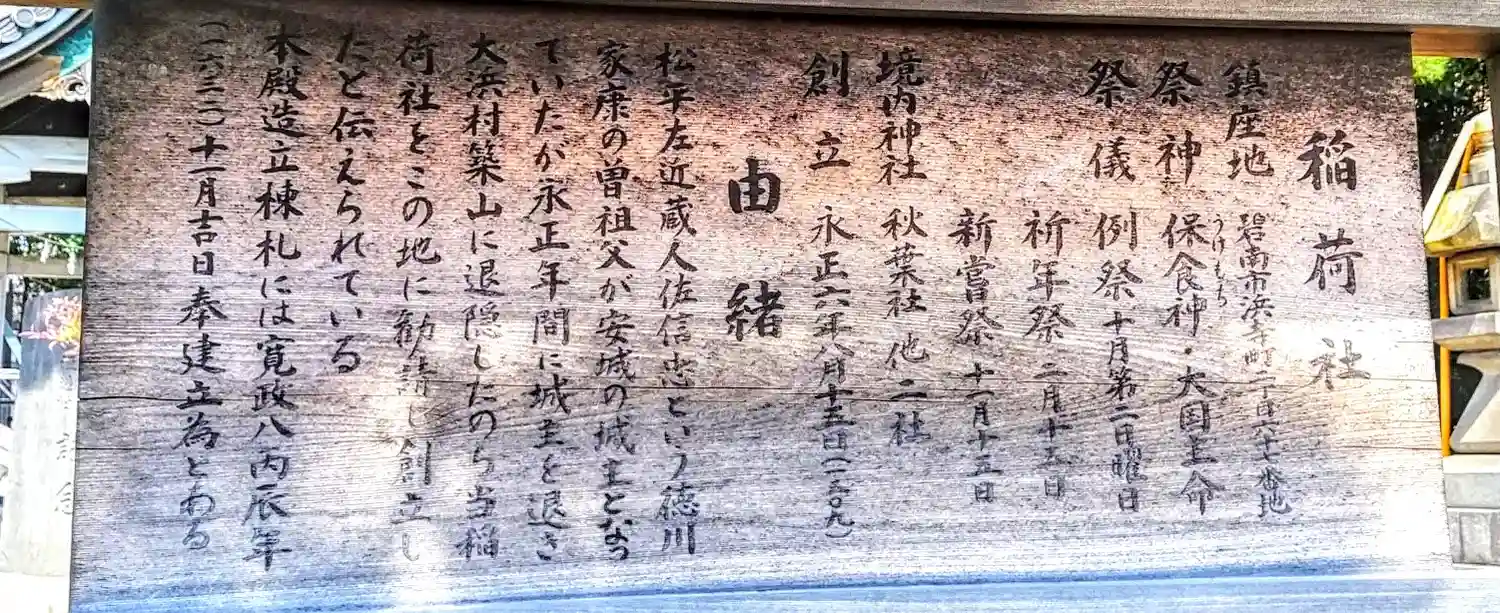 稲荷社
鎮座地 碧南市浜寺町二丁目六十番地
祭神 保食神・大国主命
うけもち
祭儀 例祭 十月第二日曜日
祈年祭 二月十五日
新嘗祭 十一月十五日
境内神社 秋葉社 他二社
創立 永正六年八月十五日(一五〇九)
由緒
松平左近蔵人佐信忠という徳川
家康の曽祖父が安城の城主となっ
ていたが永正年間に城主を退き
大浜村築山に退隠したのち当稲
荷社をこの地に勧請し創立し
たと伝えられている
本殿造立棟札には寛政八丙辰年
十一月吉日奉建立為とある